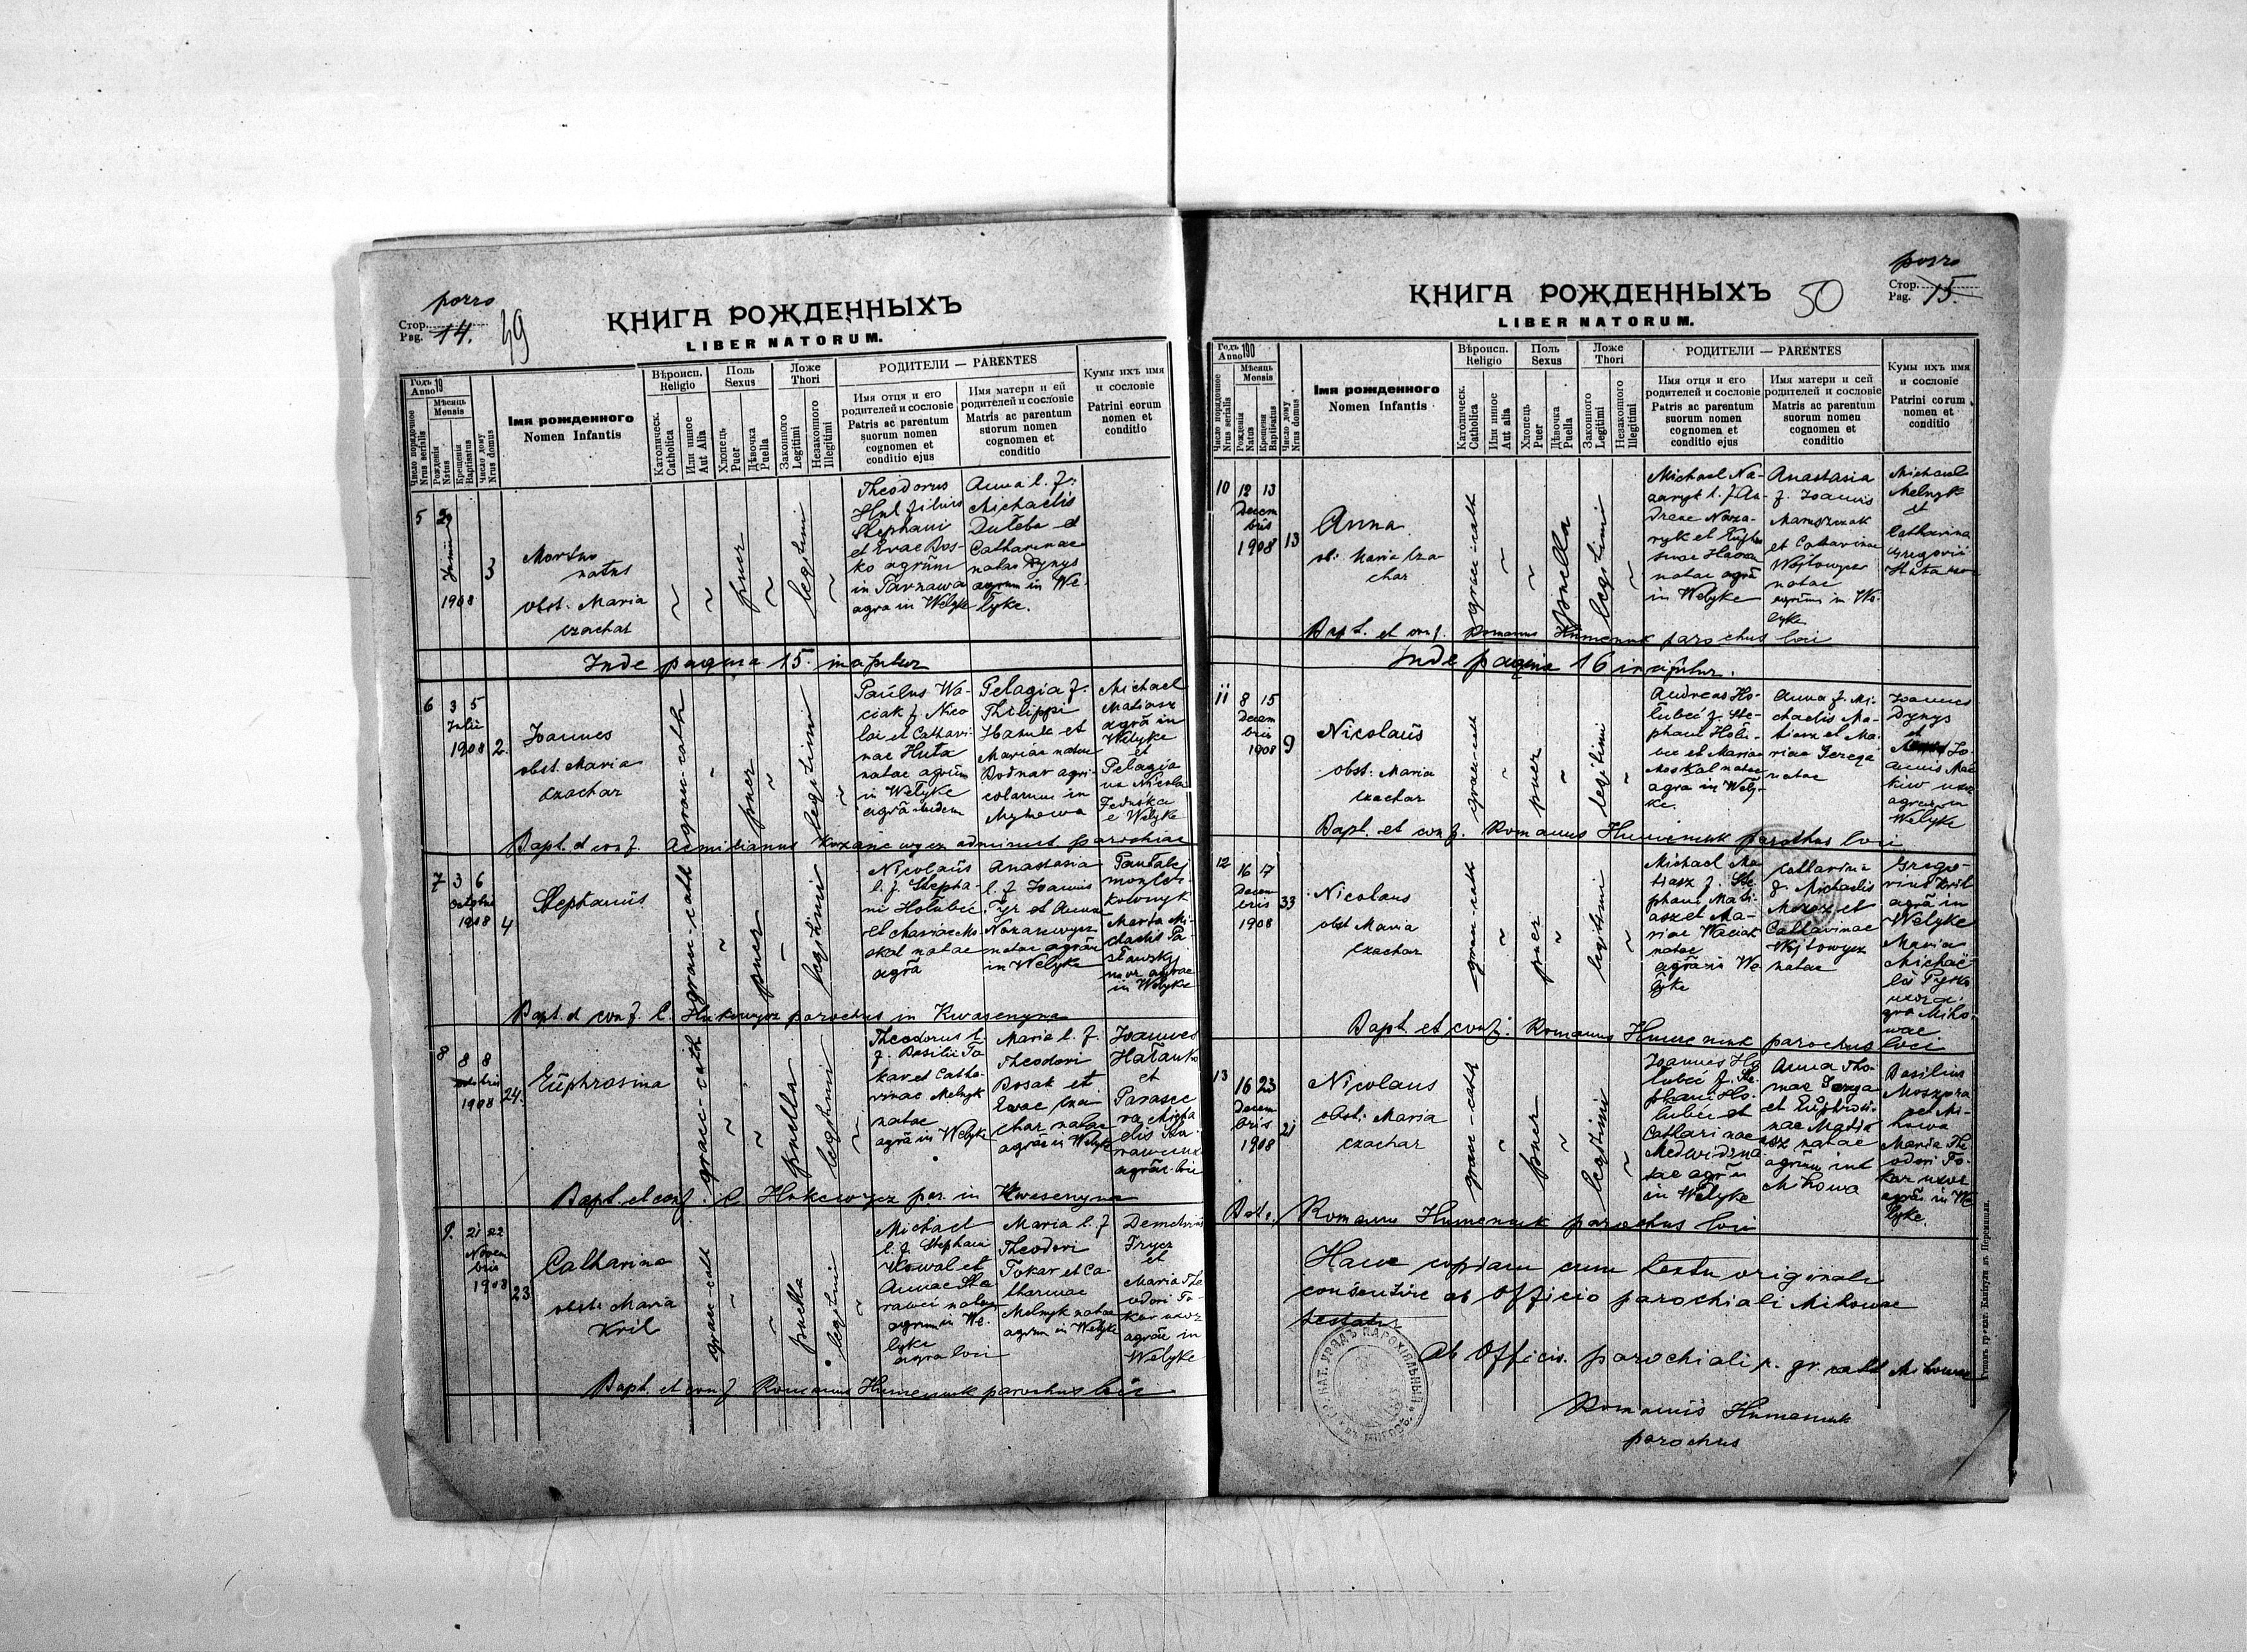 porro
Стор.
Pag. 14.
49
КНИГА РОЖДЕННЫХЪ
LIBER NATORUM.
Годъ
Anno 19
Мѣсяць
Mensis
Число порядочное
Nrus serialis
Рождения
Natus
Крещения
Baptisatus
Число дому
Nrus domus
Імя рожденного
Nomen Infantis
Вѣроисп.
Religio
Католическ.
Catholica
Или инное
Aut Alia
Поль
Sexus
Хлопець
Puer
Дѣвочка
Puella
Ложе
Thori
Законного
Legitimi
Незаконного
Illegitimi
РОДИТЕЛИ — PARENTES
Имя отця и его
родителей и сословіе
Patris ac parentum
suorum nomen
cognomen et
conditio ejus
Имя матери и ей
родителей и сословіе
Matris ac parentum
suorum nomen
cognomen et
conditio
Кумы ихъ имя
и сословіе
Patrini eorum
nomen et
conditio
5
1908
3
Mortuo
natus
obst. Maria
czachar
puer
legitimi
Theodorus
Hut filius
Stephani
et Evae Bos-
ko agrum
in Tarnawa
agra in Welyke
Anna l. f.
Michaelis
Duleba et
Catharinae
natae Dynys
agrum in We-
lyke.
Inde pagina 15. incipitur
6 3 5
Julii
1908 2.
Joannes
obst. Maria
czachar
graec-cath
puer
legitimi
Paulus Wa-
ciak f. Nico
lai et Cathari-
nae Huta
natae agrum
in Welyke
Pelagia f.
Philippi
et
Mariae natae
Bodnar agri-
colarum in
Myhowa
Michael
Matiasz
agra in
Welyke
et
Pelagia
Welyke
Bapt. et conf. Aemilianus administ parochiae
7 3 6
Octobris
1908 4
Stephanus
graec-cath
puer
legitimi
Nicolaus
l. f. Stepha-
ni Holubec
et Mariae Mo-
skal natae
agra
Anastasia
l. f. Joannis
Tyr et Annae
Nazarewycz
natae agrum
in Welyke
Maria Mi-
chaelis
in Welyke
Bapt. et conf. C. Hukewycz parochus in Kwasenyna
8 8 8
1908 24.
Euphrosina
graec-cath
puella
legitimi
Theodorus l.
f. Basilii To
kar et Catha-
rinae Melnyk
natae
agra in Welyke
Maria l. f.
Theodori
Bosak et
Evae Cza
char natae
agrae in Welyke
Joannes
et
Parasce
va Micha
elis
Bapt. et conf. C. Hukewycz par. in Kwasenyna
9. 21 22
Novem
bris
1908 23
Catharina
obst. Maria
Kril
graec-cath
puella
legitimi
Michael
l. f. Stephani
Kowal et
Annae
natae
agrum in We-
lyke
agra loci
Maria l. f.
Theodori
Tokar et Ca-
tharinae
Melnyk natae
agrum in Welyke
Demetrius
Frycz
et
Maria The
odori To-
kar uxor
agrae in
Welyke
Bapt. et conf. Romanus Humeniuk parochus loci
porro
Стор.
Pag. 15.
50
КНИГА РОЖДЕННЫХЪ
LIBER NATORUM.
Годъ
Anno 190
Мѣсяць
Mensis
Число порядочное
Nrus serialis
Рождения
Natus
Крещения
Baptisatus
Число дому
Nrus domus
Імя рожденного
Nomen Infantis
Вѣроисп.
Religio
Католическ.
Catholica
Или инное
Aut alia
Поль
Sexus
Хлопець
Puer
Дѣвочка
Puella
Ложе
Thori
Законного
Legitimi
Незаконного
Illegitimi
РОДИТЕЛИ — PARENTES
Имя отця и его
родителей и сословіе
Patris ac parentum
suorum nomen
cognomen et
conditio ejus
Имя матери и сей
родителей и сословіе
Matris ac parentum
suorum nomen
cognomen et
conditio
Кумы ихъ имя
и сословіе
Patrini eorum
nomen et
conditio
10 12 13
Decem
bris
1908 13
Anna
ob. Maria Cza
char
graec-cath
puella
legitimi
Michael Na-
zaryk l. f. An-
dreae Naza-
ryk et
natae agra
in Welyke
Anastasia
f. Joannis
et Catharinae
Wojtowycz
natae
agrum in We-
lyke
Michael
Melnyk
et
Catharina
Gregorii
Bapt. et conf. Romanus Humeniuk parochus loci
Inde pagina 16 incipitur.
11 8 15
Decem
bris
1908 9
Nicolaus
obst. Maria
czachar
graec-cath
puer
legitimi
Andreas Ho-
lubec f. Ste-
phani Holu-
bec et Mariae
Moskal natae
agra in Wely-
ke.
Anna f. Mi-
chaelis Ma-
tiasz et Ma-
riae Gerega
natae
Joannes
Dynys
et
Jo-
annis
uxor
in
Welyke
Bapt. et conf. Romanus Humeniuk parochus loci
12 16 17
Decem
bris 33
1908
Nicolaus
obst Maria
czachar
graec-cath
puer
legitimi
Michael Ma
tiasz f. Ste
phani Mati-
asz et Ma-
riae Waciak
natae
agra in We
lyke
Catharina
f. Michaelis
et
Catharinae
Wojtowycz
natae
Grego-
rius Kril
agra in
Welyke
Maria
Bapt. et conf. Romanus Humeniuk parochus loci
13 16 23
Decem
bris 21
1908
Nicolaus
obst. Maria
czachar
graec-cath
puer
legitimi
Joannes Ho
lubec f. Ste
phani Ho-
lubec et
Catharinae
in Welyke
Anna Tho-
mae
et Euphrosi-
nae Matia
sz natae
Mihowa
Basilius
Maria The
odori To-
kar uxor
agrae in We
lyke.
Romanus Humeniuk parochus loci
Hanc copiam cum textu originali
consentire ab Officio parochiali Mihowae
testatur
Ab Officio parochiali r. gr. cath Mihowae
Romanus Humeniuk
parochus